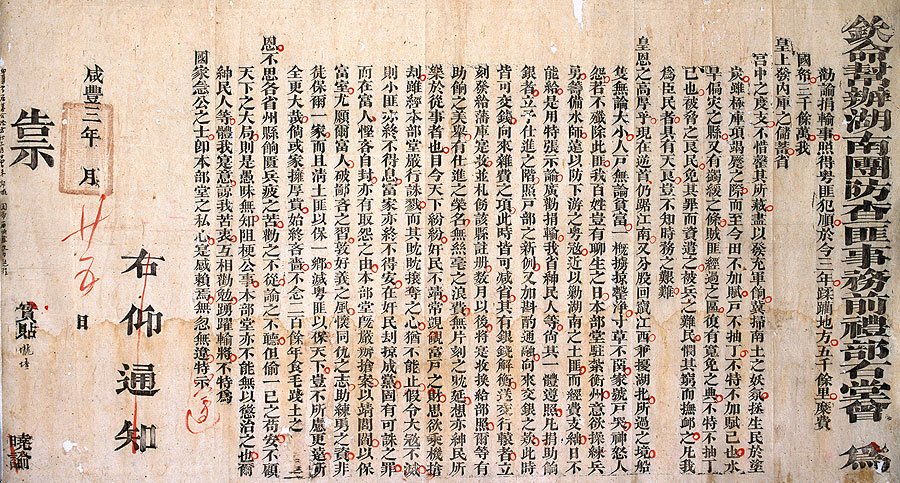 欽命幫辦湖南團防查匪事務前禮部右堂曾 為
勸諭捐輸事照得粵匪犯順於今三年蹂躪地方五千餘里糜費
國帑三千餘萬我
皇上發內庫之儲蓄省
宮中之度支不惜罄其所藏盡以發充軍餉冀掃南土之妖氛拯生民於塗
炭雖極庫項竭蹷之際而至今田不加賦戶不抽丁不特不加賦己也水
旱偏災之縣又有蠲緩之條賊匪經過之區復有寬免之典不特不抽丁
己也被脅之良民免其罪而資遣之被兵之難民憫其窮而撫卹之凡我
為臣民者具有天良豈不知時務之艱難
皇恩之高厚乎現在逆首仍踞江南又分股回竄江西兼擾湖北所過之境船
隻無論大小人戶無論貧富一概擄掠罄淨寸草不留家號戶哭神怒人
怨若不殲除此匪我百姓豈有聊生之日本部堂駐紮衡州意欲採練兵
勇籌備水師遠以防下游之粵逆近以勦湖南之土匪而經費支絀日不
能給是用特張示諭廣勸捐輸我省紳民人等尚其一體遵照凡捐助餉
銀者立予仕進之階照戶部之新例又加斟酌通融向來交銀之款此時
皆可交錢向來雜費之項此時皆可減省其有銀錢解衡送交行轅者立
刻發給藩庫寔收並札飭該縣註册數月以後將寔收換給部照爾等有
助餉之美舉有仕進之榮名無絲毫之浪費無片刻之躭延想亦紳民所
樂於從事者也目今天下紛紛奸民不靖常覬覦富戶之財思欲乘機搶
刼雖經本部堂嚴行誅戮而其眈眈攘奪之心猶不能止假令大憝不滅
則小匪亦終不得息富家亦終不得安在奸民刼掠成黨固有可誅之罪
而在富人慳吝自封亦有取怨之由本部堂既嚴辦搶案以靖閭閻以保
富室尤願爾富人破鄙吝之習敦好義之風懷同仇之志助練勇之資非
徒保爾一家而且清土匪以保一鄉滅粵匪以保天下豈不所慮更遠所
全更大哉倘或家擁厚貲始終吝嗇不念二百餘年食毛踐土之
恩不思各省州縣餉匱兵疲之苦勸之不從諭之不聽但偷一己之苟安不顧
天下之大局則是愚昧無知阻梗公事本部堂亦不能無以懲治之也爾
紳民人等體我寔意諒我苦衷互相勸勉踴躍輸將不特為
國家急公之士即本部堂之私心寔感賴焉無忽無違特示 遵
右仰通知
咸豐三年 月 廿五 日
告示
實貼 曉諭